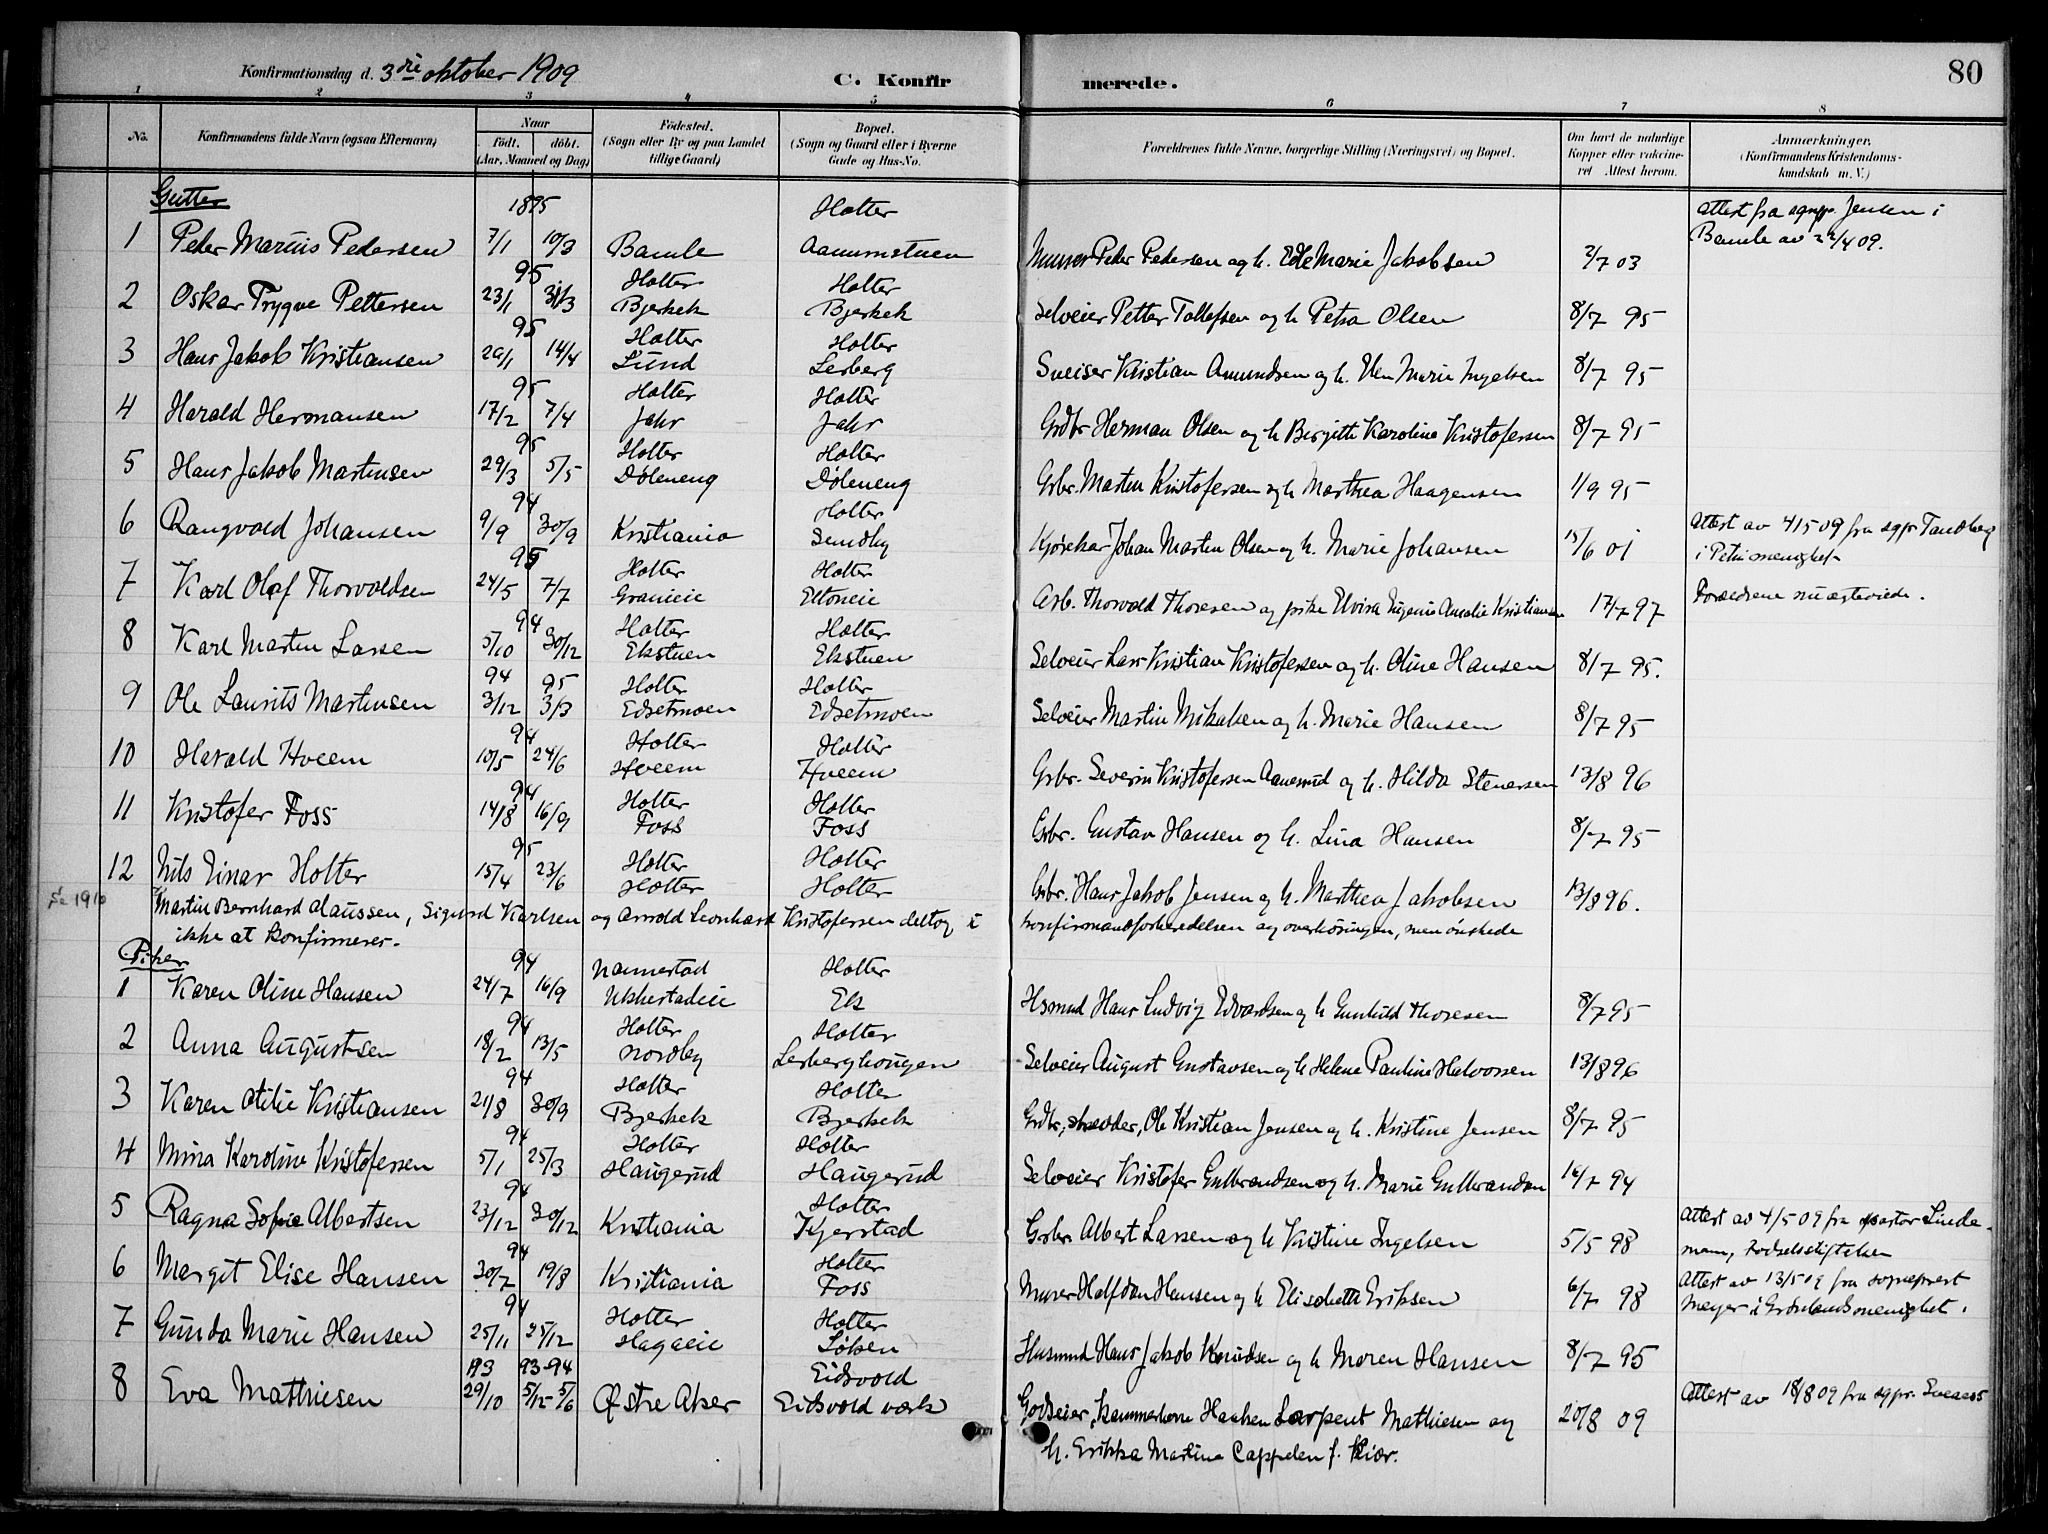 Konfirmationsdag d. 3die oktober 1909
C. Konfirmerede.
80
1 2 3 4 5 6 7 8
No.
Konfirmandens fulde Navn (ogsaa Efternavn)
Naar
født. døbt.
(Aar, Maaned og Dag)
Fødested.
(Sogn eller By og paa Landet
tillige Gaard)
Bopæl.
(Sogn og Gaard eller i Byerne
Gade og Hus-No.
Forældrenes fulde Navne, borgerlige Stilling (Næringsvei) og Bopæl.
Om havt de naturlige
Kopper eller vakcine-
ret Attest herom.
Anmærkninger.
(Konfirmandens Kristendoms-
kundskab m. V.)
Gutter
1895 Holter Attest fra sgnpr. Jensen i
1 Peter Marius Pedersen 7/1 10/3 Bamle Aamumstuen Murer Peter Pedersen og h. Ede Marie Jakobsen 2/7 03 Bamle av 22/4 09.
95 Holter Holter
2 Oskar Trygve Pettersen 23/1 31/3 Bjerkek Bjerkek Selveier Petter Tollefsen og h Petra Olsen 8/7 95
95 Holter Holter
3 Hans Jakob Kristiansen 29/1 14/4 Lund Lerberg Sveiser Kristian Amundsen og h. Elen Marie Ingelsen 8/7 95
95 Holter Holter
4 Harald Hermansen 17/2 7/4 Jahr Jahr Grdbr Herman Olsen og h Birgitte Karoline Kristofersen 8/7 95
95 Holter Holter
5 Hans Jakob Martinsen 29/3 5/5 Døleneng Døleneng Grbr. Martin Kristofersen og h Marthea Haagensen 1/9 95
94 Holter
6 Rangvald Johansen 9/9 30/9 Kristiania Sundby Kjørekar Johan Martin Olsen og h. Marie Johansen 15/6 01 Attest av 4/5 09 fra sgpr Tandberg
i Petri menighet
95 Holter Holter
7 Karl Olaf Thorvaldsen 24/5 7/7 Granieie Eltoneie Arb. Thorvald Thoresen og pike Elvira Eugenie Amalie Kristiansen 17/7 97 Forældrene nu ægteviede.
94 Holter Holter
8 Karl Martin Larsen 5/10 30/12 Ekstuen Ekstuen Selveier Lars Kristian Kristofersen og h. Oline Hansen 8/7 95.
94 95 Holter Holter
9 Ole Laurits Martinsen 3/12 3/3 Edsetmoen Edsetmoen Selveier Martin Mikalsen og h. Marie Hansen 8/7 95
94 Holter Holter
10 Harald Hveem 10/5 24/6 Hveem Hveem Grbr. Severin Kristofersen Aanesrud og h. Hilda Stenersen 13/8 96
94 Holter Holter
11 Kristofer Foss 14/8 16/9 Foss Foss Grbr. Gustav Hansen og h. Lina Hansen 8/7 95
95 Holter Holter
12 Nils Einar Holter 15/4 23/6 Holter Holter Grbr. Hans Jakob Jensen og h. Marthea Jakobsen 13/8 96.
Martin Bernhard Claussen, Sigurd Karlsen og Arnold Leonhard Kristofersen deltog i konfirmantforberedelsen og overhøringen, men ønskede
ikke at konfirmeres.
Piker
94 Nannestad Holter
1 Karen Oline Hansen 24/7 16/9 Ukkestadeie Ek Hsmnd Hans Ludvig Edvardsen og h Gunhild Thoresen 8/7 95
94 Holter Holter
2 Anna Augustsen 18/2 13/5 Nordby Lerberghougen Selveier August Gustavsen og h Helene Pauline Halvorsen 13/8 96
94 Holter Holter
3 Karen Otilie Kristiansen 21/8 30/9 Bjerkek Bjerkek Grdbr, skrædder, Ole Kristian Jensen og h. Kristine Jensen 8/7 95
94 Holter Holter
4 Mina Karoline Kristofersen 5/1 25/3 Haugerud Haugerud Selveier Kristofer Gulbrandsen og h. Marie Gulbrandsen 16/7 94
94 Holter
5 Ragna Sofie Albertsen 23/12 30/12 Kristiania Kjerstad Grbr. Albert Larsen og h Kristine Ingelsen 5/5 98 Attest av 4/5 09 fra pastor Linde-
mann, Fødselsstiftelsen
94 Holter
6 Margit Elise Hansen 30/7 19/8 Kristiania Foss Murer Halfdan Hansen og h Elisabeth Eriksen 6/7 98 Attest av 13/5 09 fra sogneprest
Meyer i Grønlands menighet.
94 Holter Holter
7 Gunda Marie Hansen 25/11 25/12 Hagaeie Løken Husmnd Hans Jakob Knudsen og h Maren Hansen 8/7 95
93 93-94 Eidsvold
8 Eva Mathiesen 29/10 5/12-5/6 Østre Aker Eidsvold værk Godseier, kammerherre Haaken Larpent Mathiesen og 20/8 09 Attest av 18/8 09 fra sgpr.
h. Erikka Martine Cappelen f. Kiær.